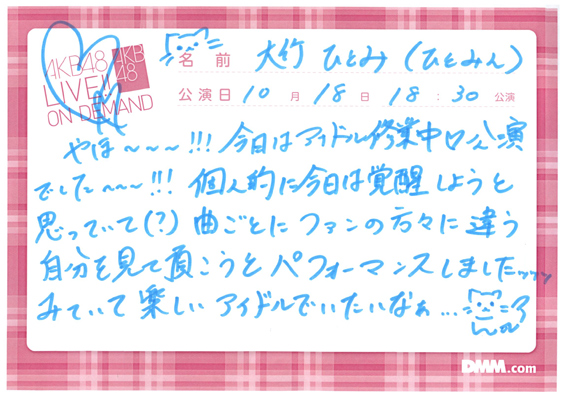 AKB48
LIVE!!
ON DEMAND
AKB
48
名前 大竹 ひとみ(ひとみん)
公演日 10月18日 18:30公演
やほ~~~!!! 今日はアイドル修業中♡公演
でした~~~!!! 個人的に今日は覚醒しようと
思っていて(?) 曲ごとにファンの方々に違う
自分を見て頂こうとパフォーマンスしましたッッッ
みていて楽しいアイドルでいたいなぁ...
DMM.com